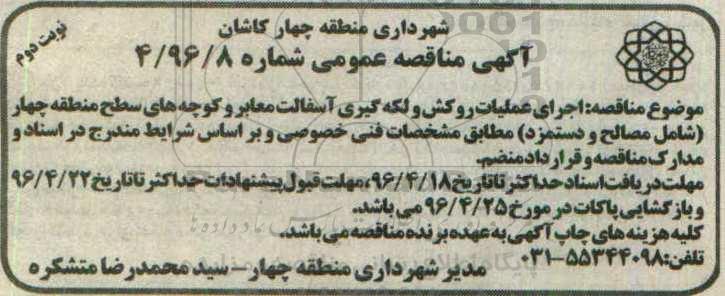 شهرداری منطقه چهار کاشان
نوبت دوم
آگهی مناقصه عمومی شماره ۴/۹۶/۸
موضوع مناقصه: اجرای عملیات روکش و لکه گیری آسفالت معابر و کوچه های سطح منطقه چهار
(شامل مصالح و دستمزد) مطابق مشخصات فنی خصوصی و بر اساس شرایط مندرج در اسناد و
مدارک مناقصه و قرارداد منضم.
مهلت دریافت اسناد حداکثر تا تاریخ ۹۶/۴/۱۸، مهلت قبول پیشنهادات حداکثر تا تاریخ ۹۶/۴/۲۲
و بازگشایی پاکات در مورخ ۹۶/۴/۲۵ می باشد.
کلیه هزینه های چاپ آگهی به عهده برنده مناقصه می باشد.
تلفن: ۵۵۳۴۴۰۹۸-۰۳۱
مدیر شهرداری منطقه چهار - سید محمدرضا متشکره